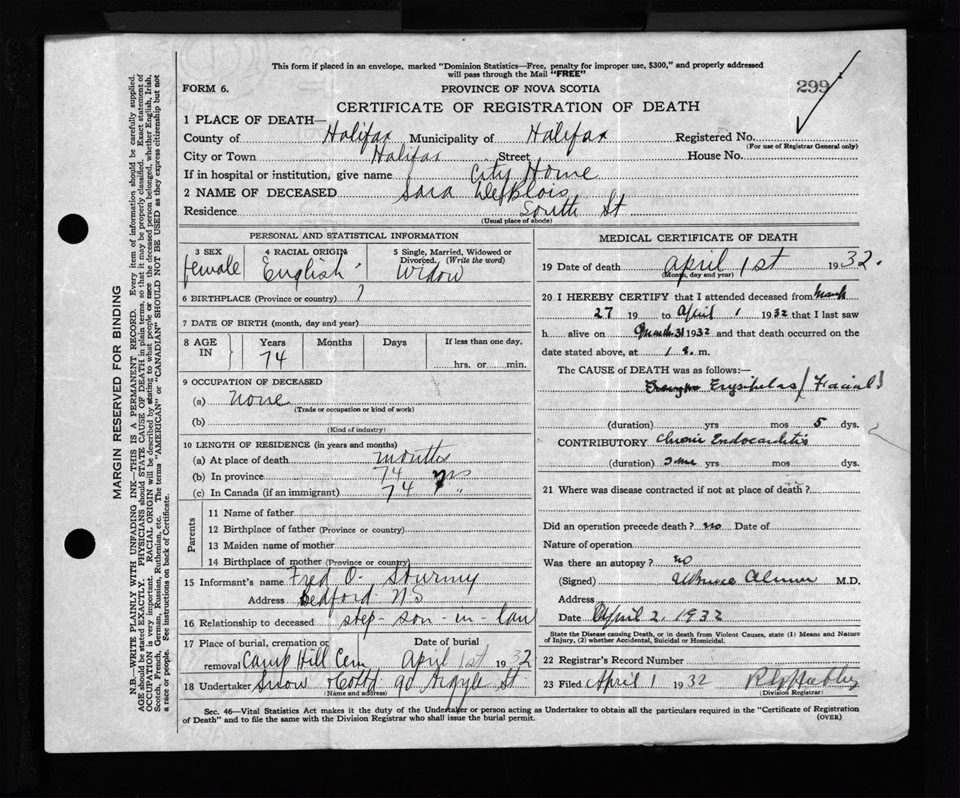 This form if placed in an envelope, marked "Dominion Statistics—Free, penalty for improper use, $300," and properly addressed
will pass through the Mail "FREE"
FORM 6. PROVINCE OF NOVA SCOTIA 299
CERTIFICATE OF REGISTRATION OF DEATH
1 PLACE OF DEATH—
County of Halifax Municipality of Halifax Registered No.
(For use of Registrar General only)
City or Town Halifax Street House No.
If in hospital or institution, give name City Home
2 NAME OF DECEASED Sara DesBlois
Residence South St
(Usual place of abode)
PERSONAL AND STATISTICAL INFORMATION
3 SEX 4 RACIAL ORIGIN 5 Single, Married, Widowed or
Divorced. (Write the word)
female English widow
6 BIRTHPLACE (Province or country) ?
7 DATE OF BIRTH (month, day and year)
8 AGE IN Years Months Days If less than one day,
74 hrs. or min.
9 OCCUPATION OF DECEASED
(a) none
(Trade or occupation or kind of work)
(b)
(Kind of industry)
10 LENGTH OF RESIDENCE (in years and months)
(a) At place of death months
(b) In province 74 yrs
(c) In Canada (if an immigrant) 74 "
Parents
11 Name of father
12 Birthplace of father (Province or country)
13 Maiden name of mother
14 Birthplace of mother (Province or country)
15 Informant's name Fred O. Sturmy
Address Bedford NS
16 Relationship to deceased step-son-in-law
17 Place of burial, cremation or removal Date of burial
Camp Hill Cem April 1st 1932
18 Undertaker Snow & Co Ltd 90 Argyle St
(Name and address)
MEDICAL CERTIFICATE OF DEATH
19 Date of death April 1st 1932.
(Month, day and year)
20 I HEREBY CERTIFY that I attended deceased from March
27 19 to April 1 1932 that I last saw
h alive on March 31 1932 and that death occurred on the
date stated above, at 1 a. m.
The CAUSE OF DEATH was as follows:—
Erysipelas (Facial)
(duration) yrs mos 5 dys.
CONTRIBUTORY Chronic Endocarditis
(duration) some yrs mos dys.
21 Where was disease contracted if not at place of death?
Did an operation precede death? no Date of
Nature of operation
Was there an autopsy? no
(Signed) M.D.
Address
Date April 2, 1932
State the Disease causing Death, or in death from Violent Causes, state (1) Means and Nature
of Injury, (2) whether Accidental, Suicidal or Homicidal.
22 Registrar's Record Number
23 Filed April 1 1932
(Division Registrar)
Sec. 46—Vital Statistics Act makes it the duty of the Undertaker or person acting as Undertaker to obtain all the particulars required in the "Certificate of Registration
of Death" and to file the same with the Division Registrar who shall issue the burial permit. (OVER)
MARGIN RESERVED FOR BINDING
N.B.—WRITE PLAINLY WITH UNFADING INK—THIS IS A PERMANENT RECORD. Every item of information should be carefully supplied.
AGE should be stated EXACTLY. PHYSICIANS should STATE CAUSE OF DEATH in plain terms, so that it may be properly classified. Exact statement of
OCCUPATION is very important. RACIAL ORIGIN will be described by stating to what people or race the deceased person belonged, whether English, Irish,
Scotch, French, German, Russian, Ruthenian, etc. The terms "AMERICAN" or "CANADIAN" SHOULD NOT BE USED as they express citizenship but not
a race or people. See instructions on back of Certificate.